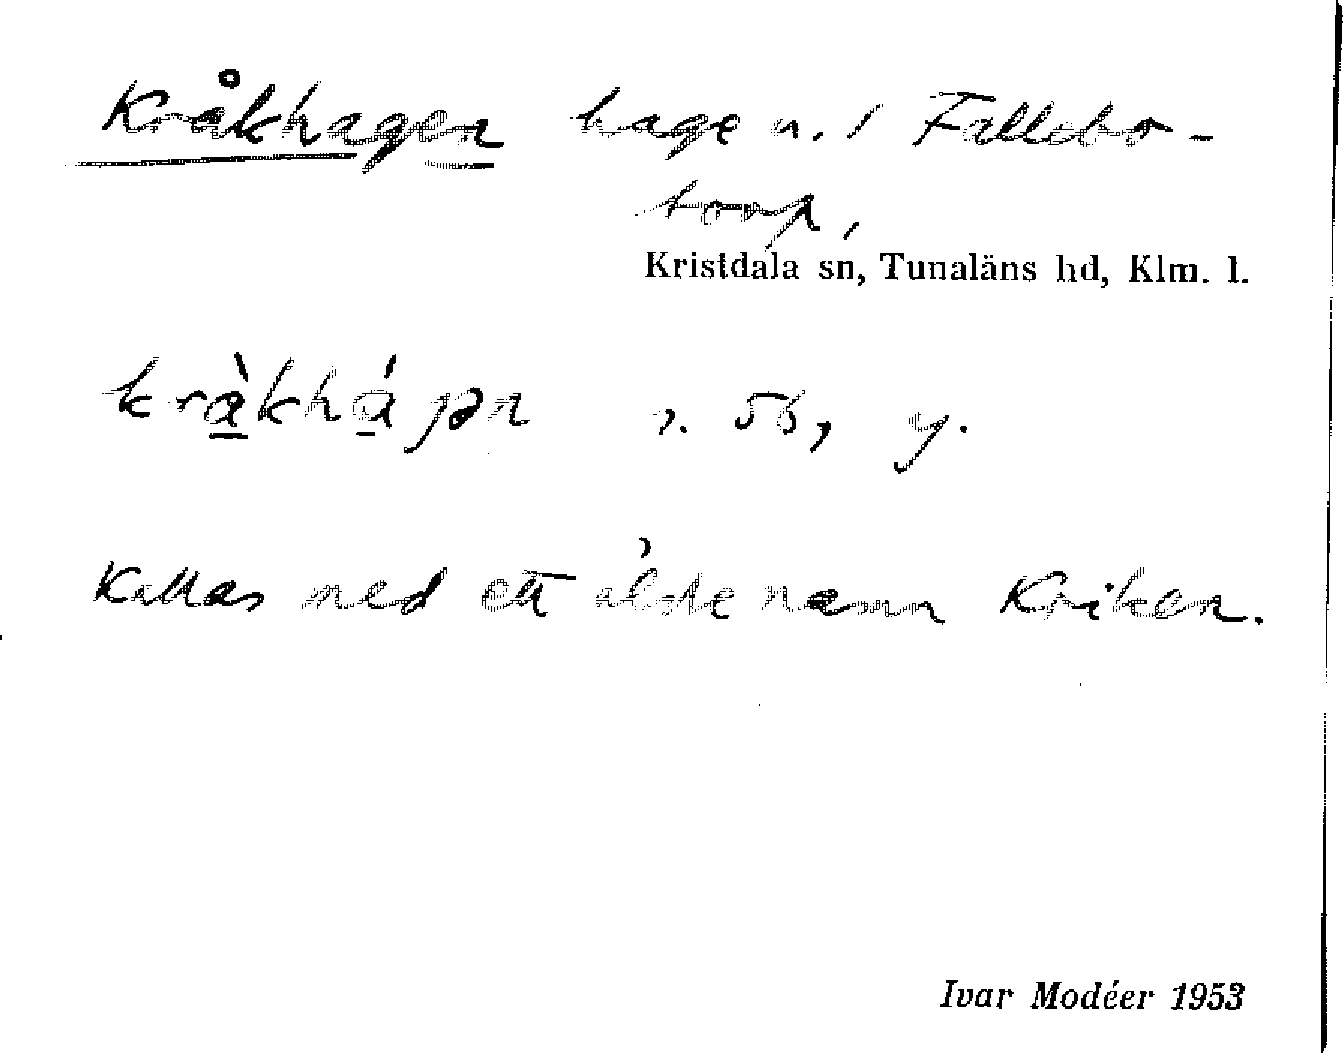 Kråkhagen hage n. i Fallebo-
torp,
Kristdala sn, Tunaläns hd, Klm. l.
kràkhágən s. 56, y.
Kallas med ett äldre namn Kriken.
Ivar Modéer 1953